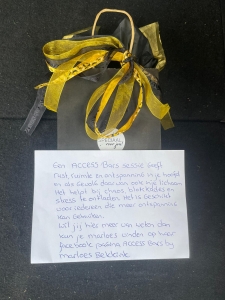 Speciaal
voor jou!
Een ACCESS Bars sessie geeft
rust, ruimte en ontspanning in je hoofd
en als gevolg daarvan ook in je lichaam.
Het helpt bij chaos, blokkades en
stress te ontladen. Het is geschikt
voor iedereen die meer ontspanning
kan gebruiken.
Wil jij hier meer van weten dan
kun je marloes vinden op haar
facebook pagina Access Bars by
marloes